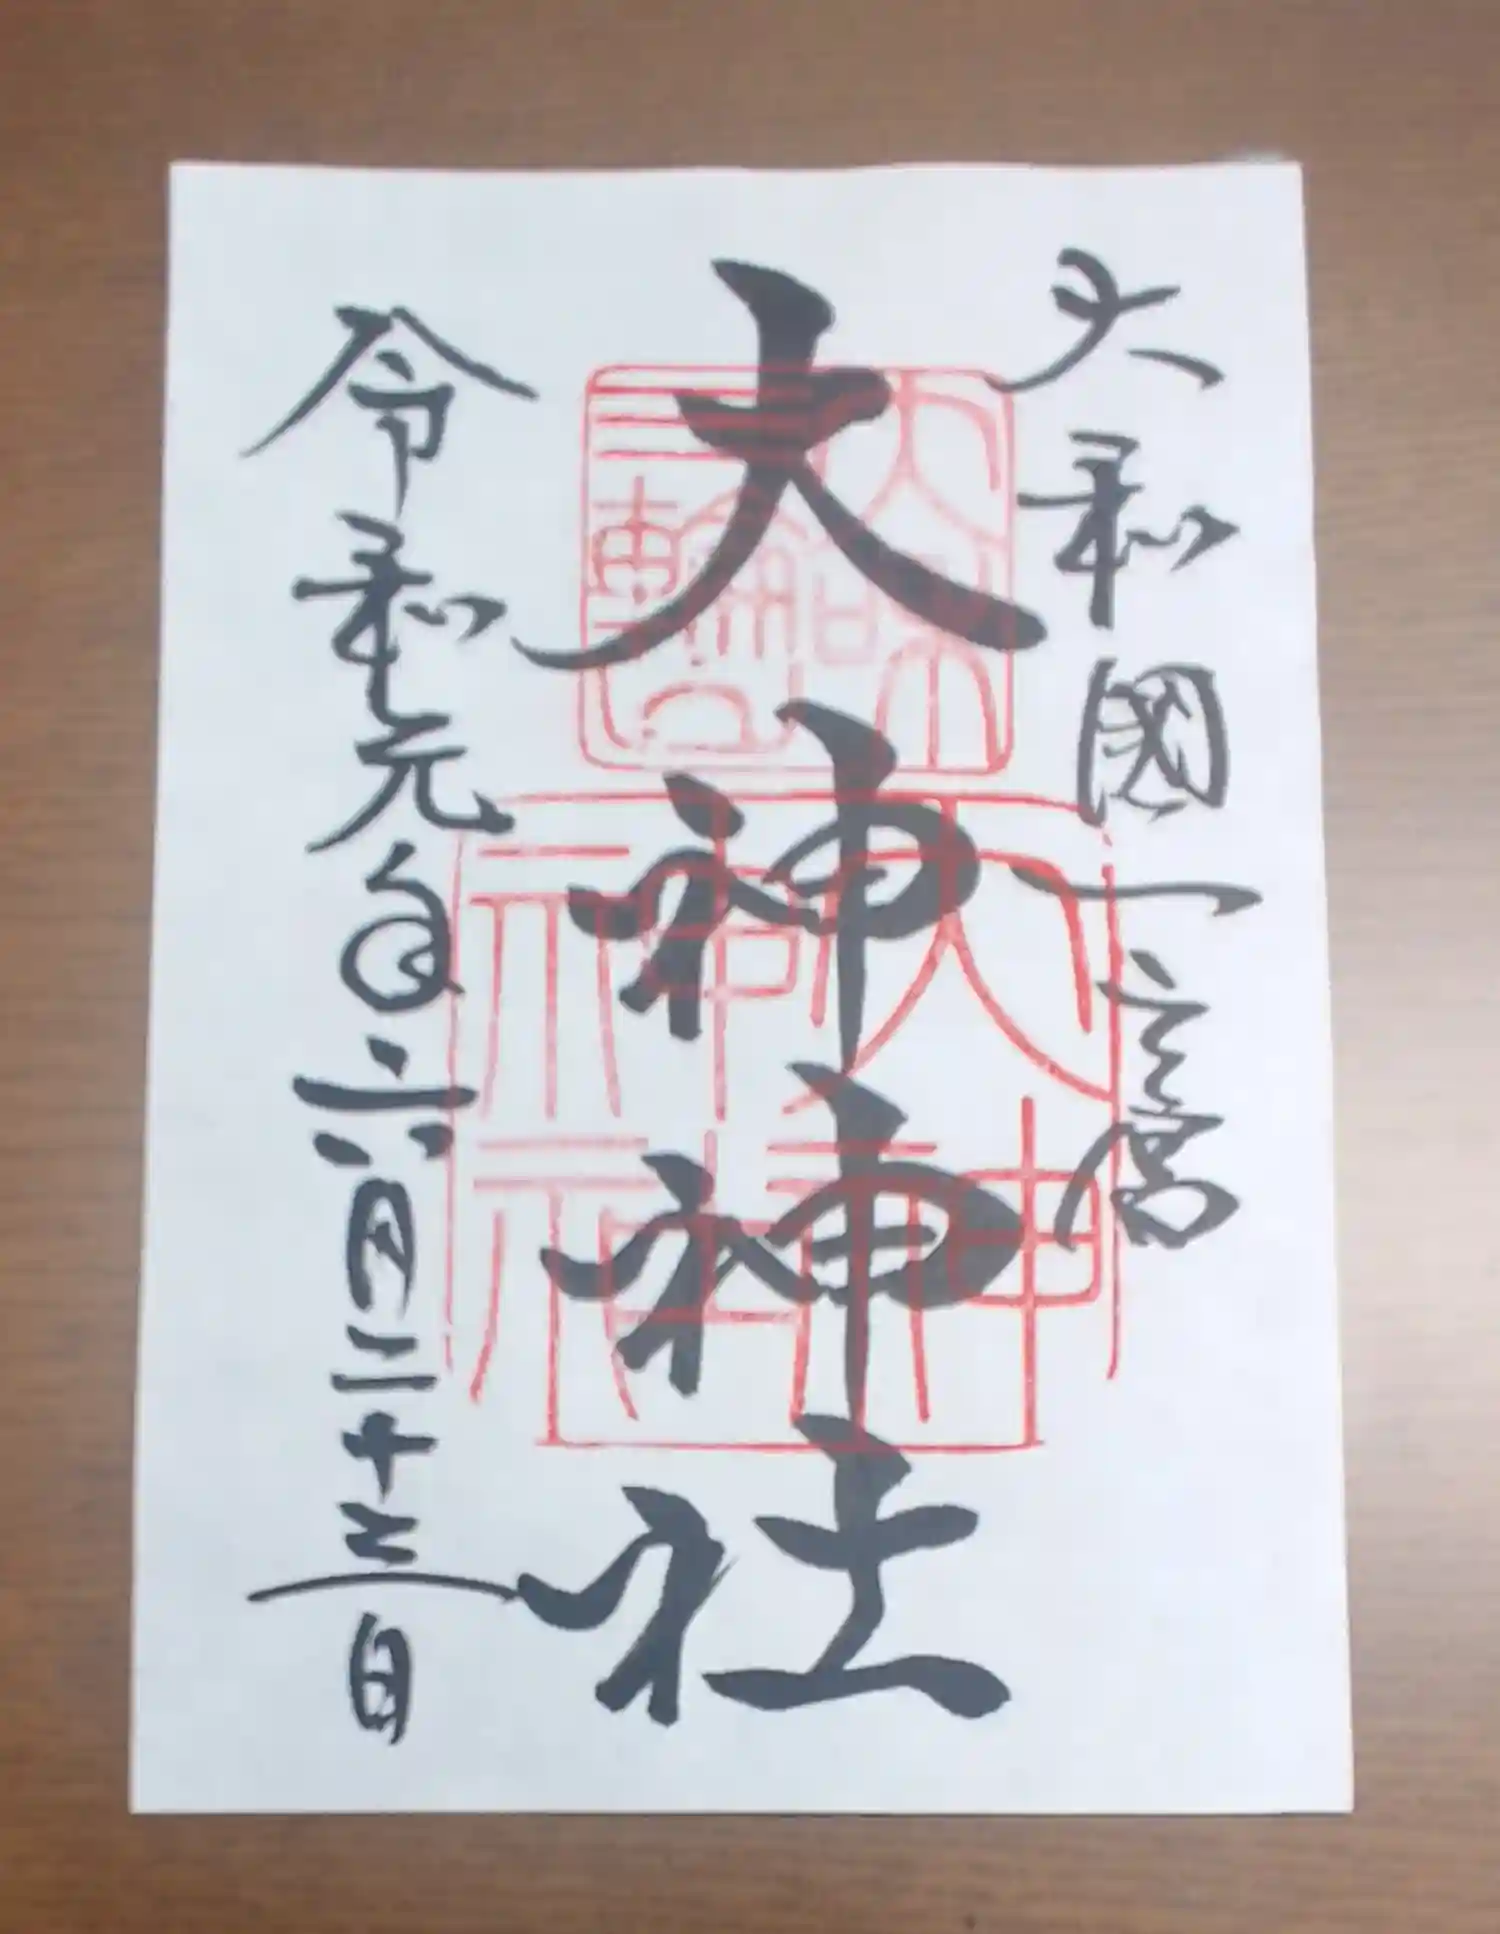 大和國一之宮
大神神社
令和元年六月二十三日
大神神社